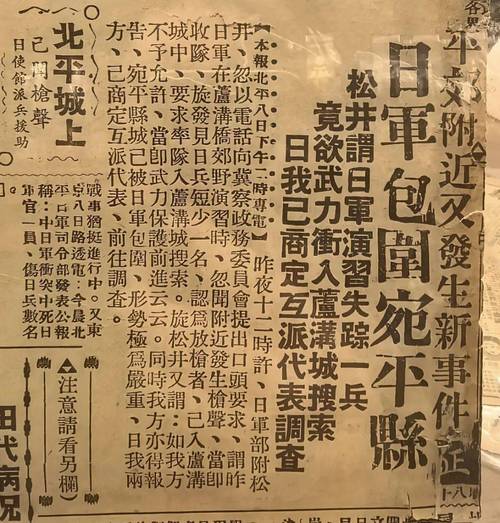 各界
平郊附近又發生新事件
日軍包圍宛平縣
松井謂日軍演習失踪一兵
竟欲武力衝入蘆溝城搜索
日我已商定互派代表調查
【本報北平八日下午二時專電】昨夜十二時許、日軍部附松
井、忽以電話向冀察政務委員會提出口頭要求、謂昨
日軍在蘆溝橋郊野演習時、忽聞附近發生槍聲、當即
收隊、旋發見日兵短少一名、認為放槍者、已入蘆溝
城中、要求率隊入蘆溝城搜索。旋松井又謂：如我方
不予允許、當即武力保護前進云云。同時我方亦得報
告、宛平縣城已被日軍包圍、形勢極為嚴重、日我兩
方、已商定互派代表、前往調查。
北平城上
已聞槍聲
日使館派兵援助
戰事猶挺進行中。又東
京八日路透電：今晨北
平日軍司令部發表公報
稱：中日軍衝突中死日
軍官一員、傷日兵數名
。
（注意請看另欄）
田代病況